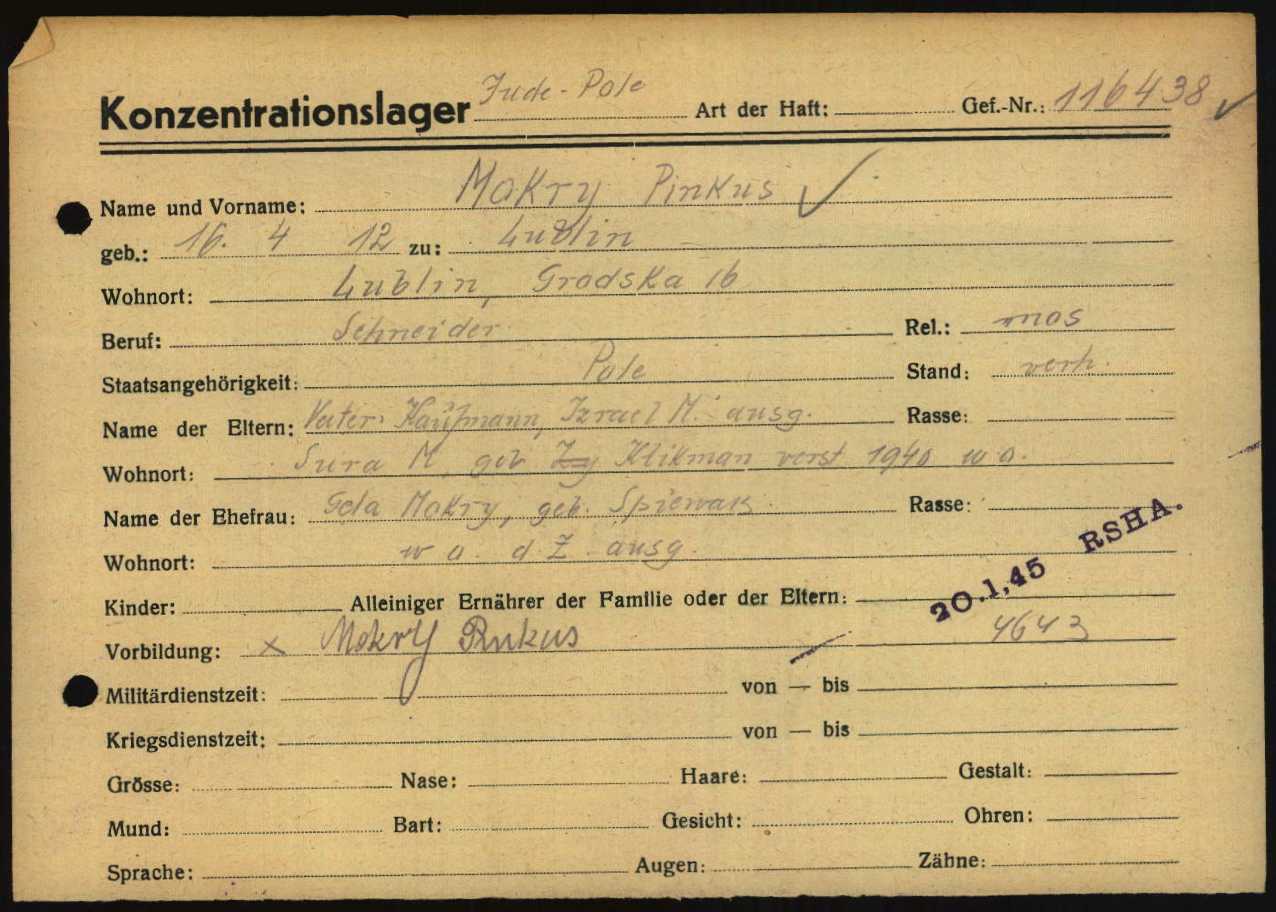 Konzentrationslager Jude-Pole Art der Haft: Gef.-Nr.: 116438
Name und Vorname: Mokry Pinkus
geb.: 16. 4 12 zu: Lublin
Wohnort: Lublin, Grodska 16
Beruf: Schneider Rel.: mos
Staatsangehörigkeit: Pole Stand: verh.
Name der Eltern: Vater: Kaufmann, Izrael M. ausg. Rasse:
Wohnort: Sura M. geb Klikman verst 1940 w o.
Name der Ehefrau: Mokry, geb. Spiewak Rasse:
Wohnort: w o. d. Z. ausg.
RSHA.
20.1.45
Kinder: Alleiniger Ernährer der Familie oder der Eltern:
Vorbildung: x Mokry Pinkus 4643
Militärdienstzeit: von — bis
Kriegsdienstzeit: von — bis
Grösse: Nase: Haare: Gestalt:
Mund: Bart: Gesicht: Ohren:
Sprache: Augen: Zähne: